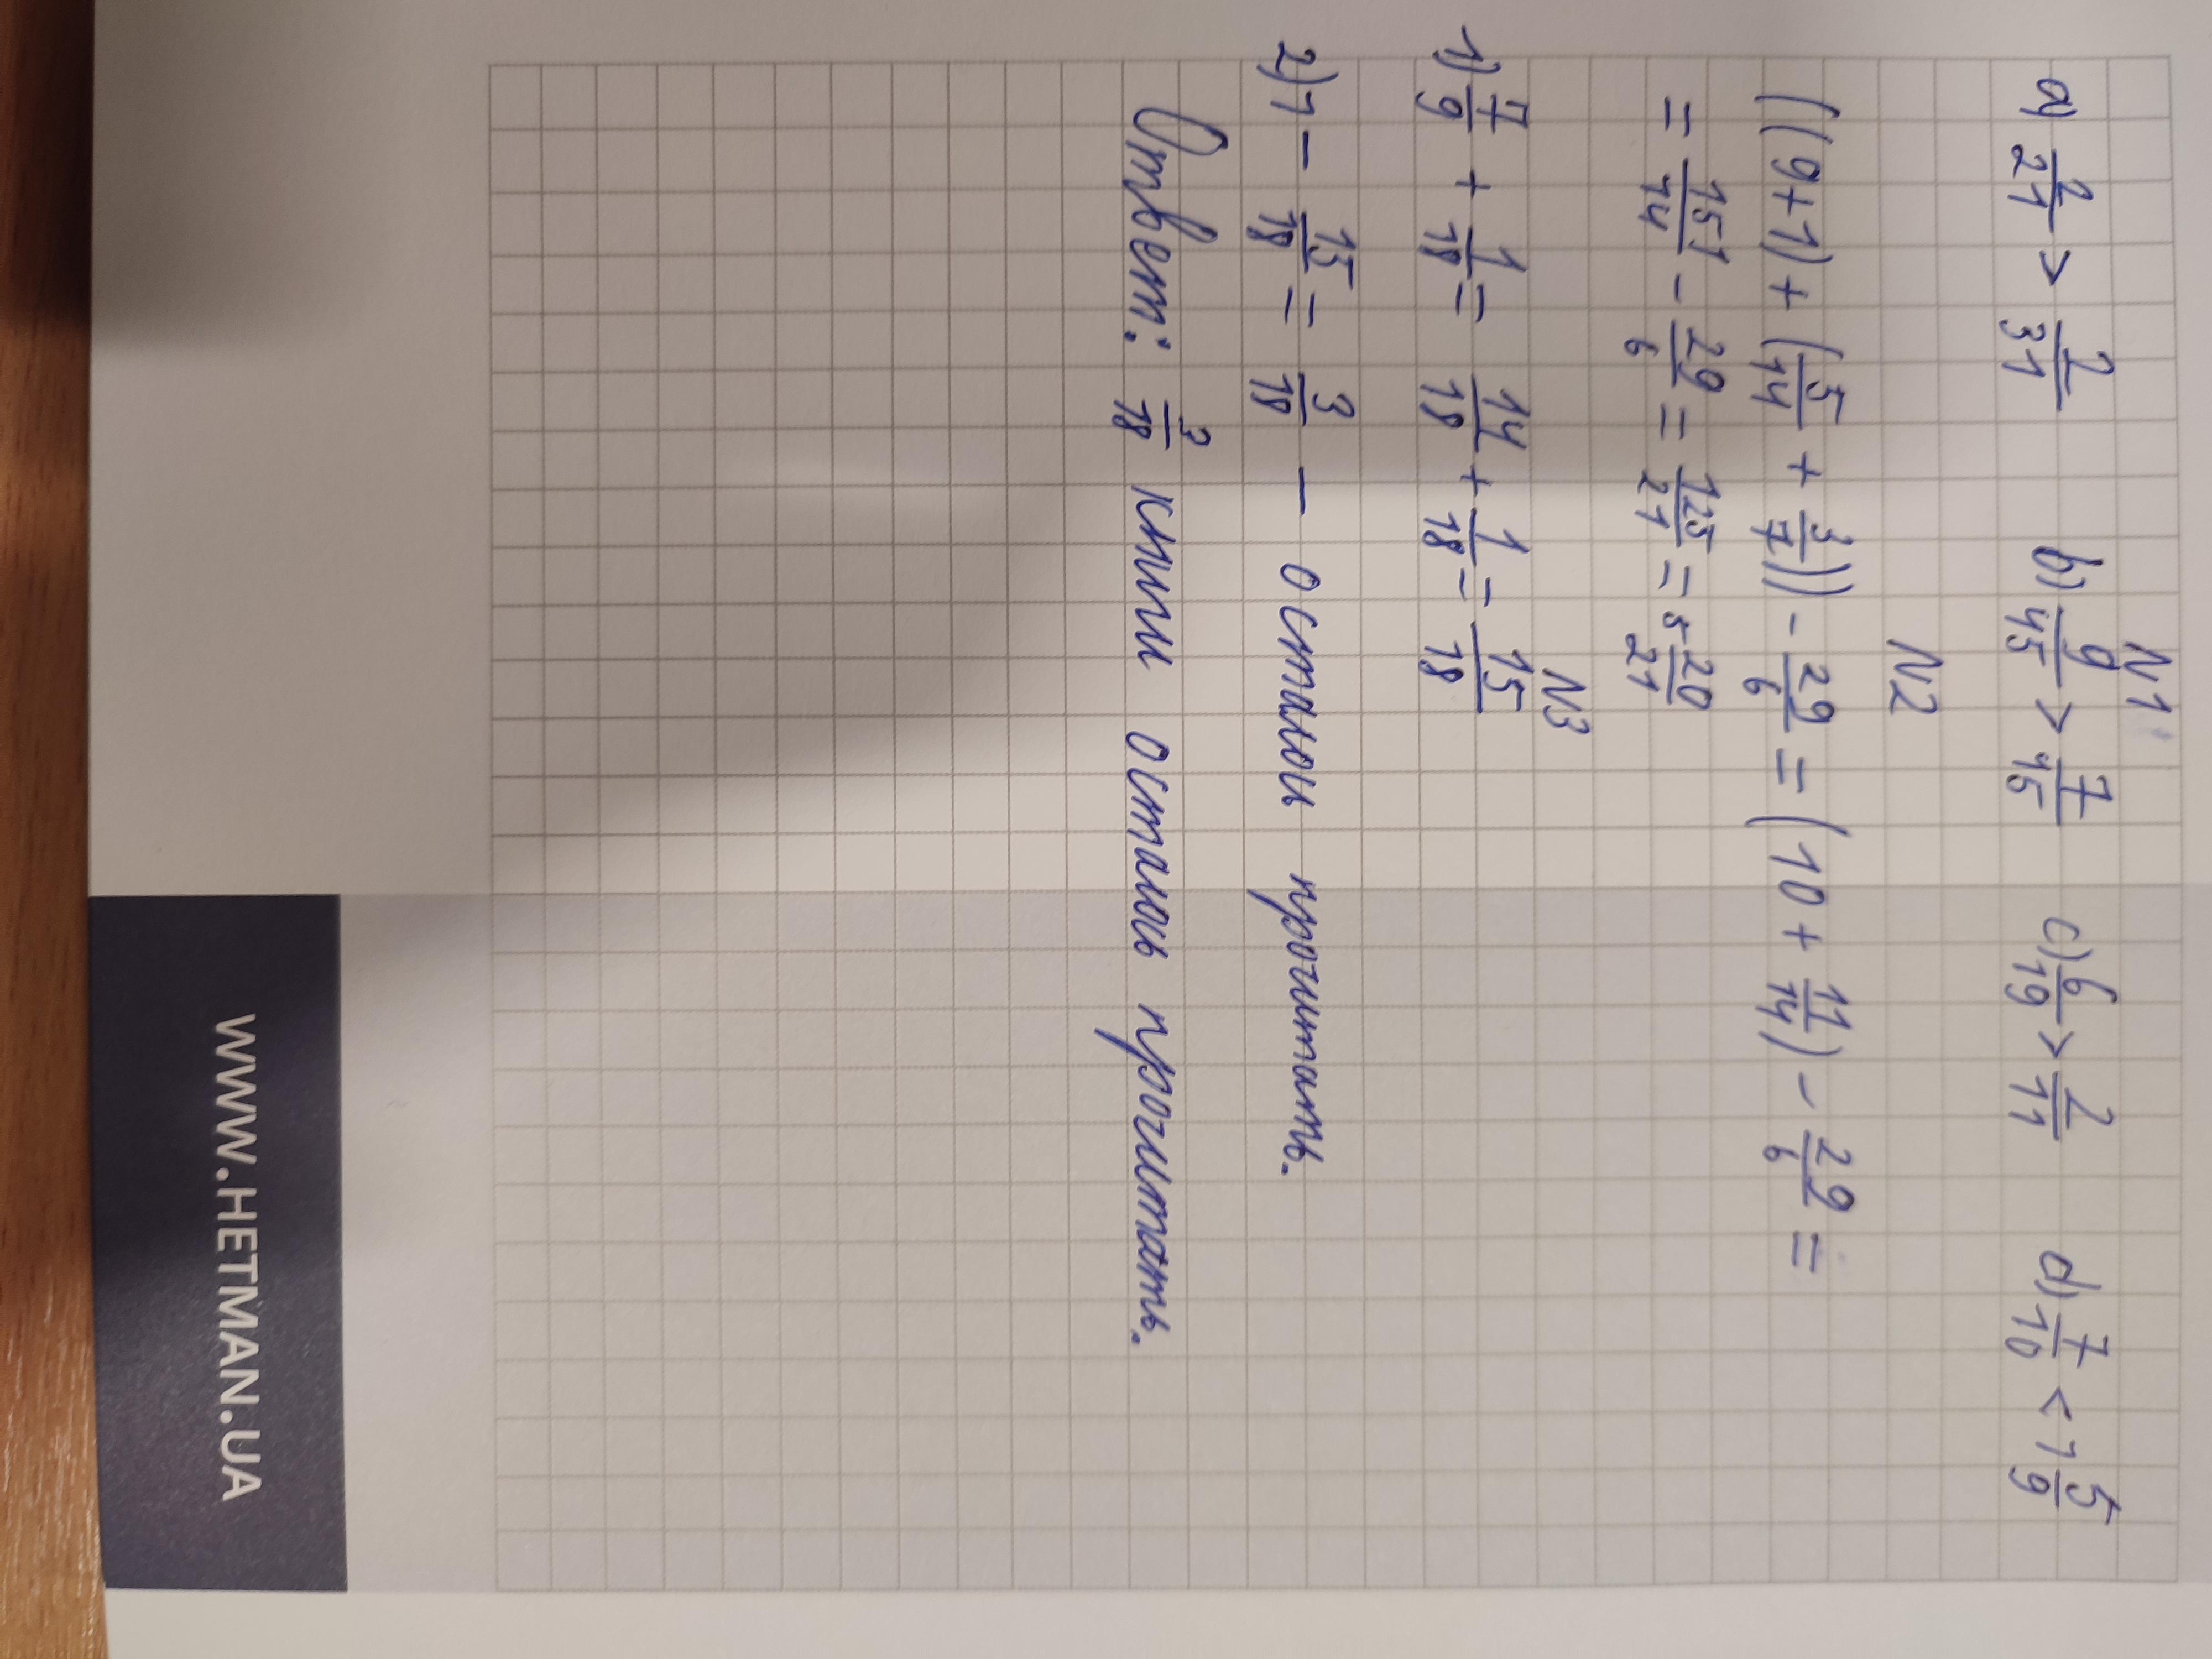 N1
a) 2/21 > 2/31 b) 9/45 > 7/45 c) 6/19 > 2/11 d) 7/10 < 1 5/9
N2
((9+1) + (5/14 + 3/7)) - 29/6 = (10 + 11/14) - 29/6 =
= 151/14 - 29/6 = 125/21 = 5 20/21
N3
1) 7/9 + 1/18 = 14/18 + 1/18 = 15/18
2) 1 - 15/18 = 3/18 - осталось прочитать.
Ответ: 3/18 книги осталось прочитать.
WWW.HETMAN.UA